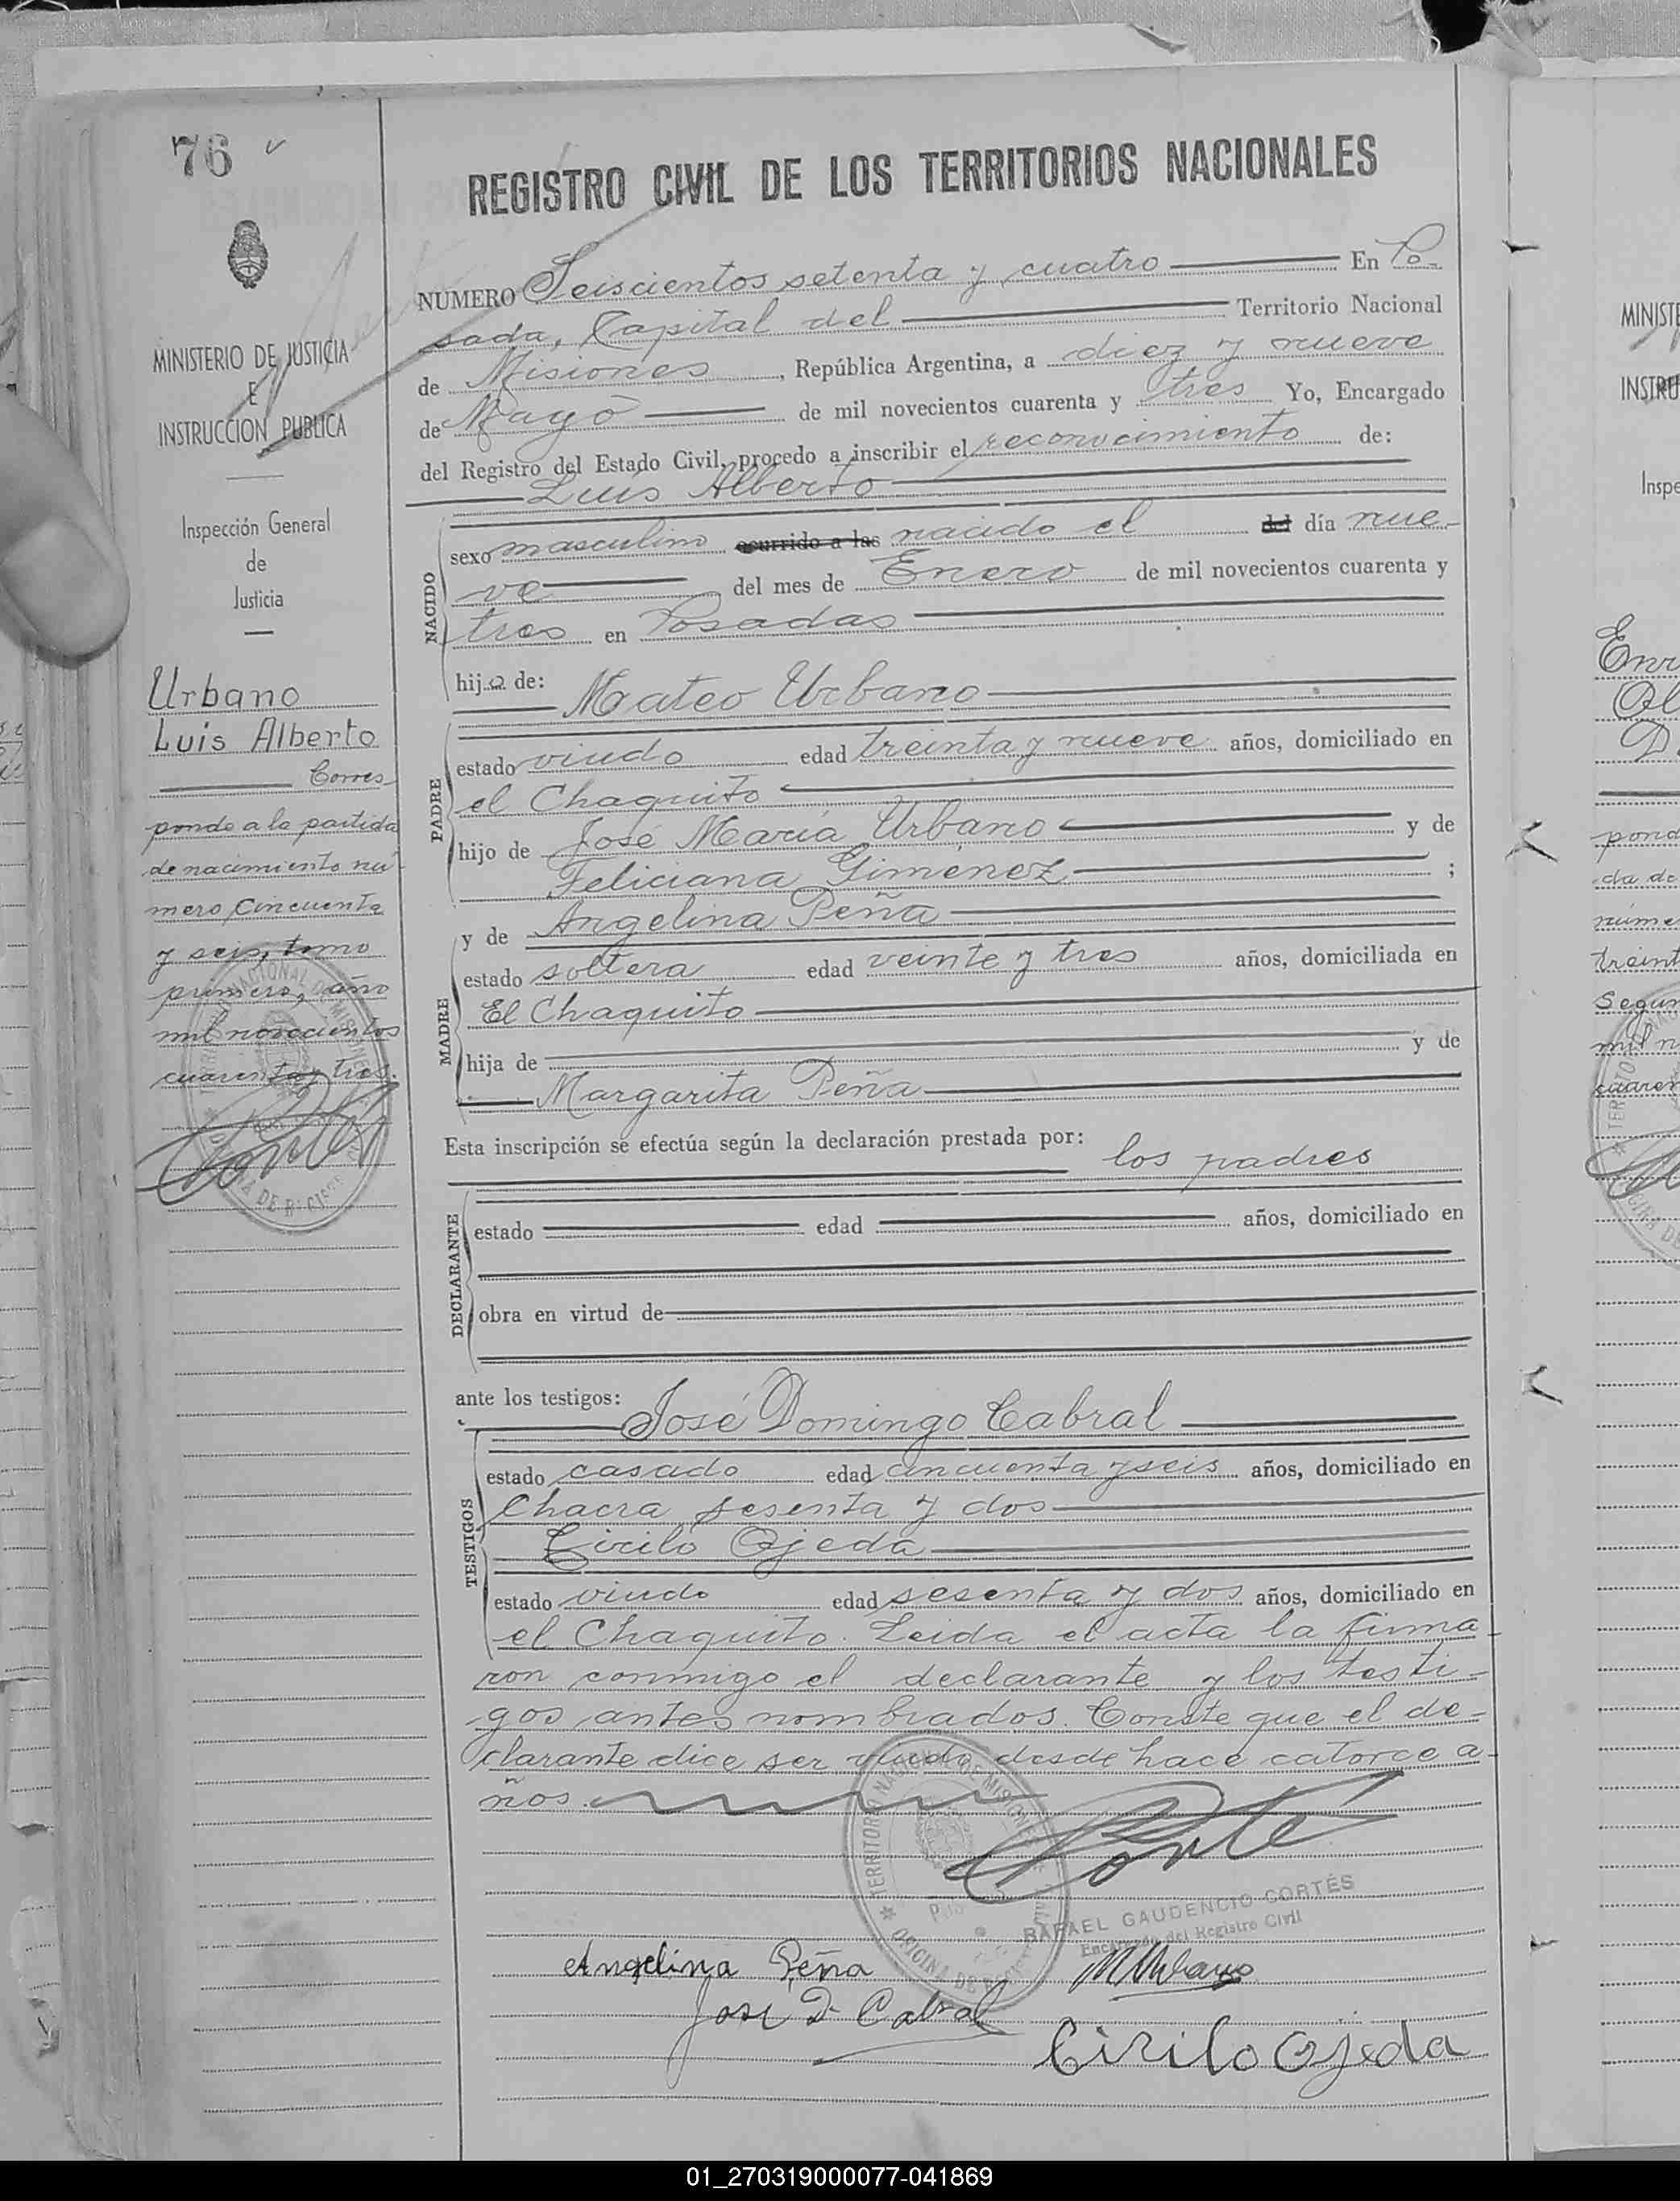 76
REGISTRO CIVIL DE LOS TERRITORIOS NACIONALES
NUMERO Seiscientos setenta y cuatro En Po-
sada, Capital del Territorio Nacional
de Misiones, República Argentina, a diez y nueve
de Mayo de mil novecientos cuarenta y tres Yo, Encargado
del Registro del Estado Civil, procedo a inscribir el reconocimiento de:
Luis Alberto
NACIDO
sexo masculino ocurrido a las nacido el del día nue-
ve del mes de Enero de mil novecientos cuarenta y
tres en Posadas
hijo de: Mateo Urbano
PADRE
estado viudo edad treinta y nueve años, domiciliado en
el Chaquito
hijo de José María Urbano y de
Feliciana Gimenez ;
y de Angelina Peña
MADRE
estado soltera edad veinte y tres años, domiciliada en
El Chaquito
hija de y de
Margarita Peña
Esta inscripción se efectúa según la declaración prestada por: los padres
DECLARANTE
estado edad años, domiciliado en
obra en virtud de
ante los testigos: José Domingo Cabral
TESTIGOS
estado casado edad cincuenta y seis años, domiciliado en
Chacra sesenta y dos
Cirilo Ojeda
estado viudo edad sesenta y dos años, domiciliado en
el Chaquito. Leida el acta la firma-
ron conmigo el declarante y los testi-
gos antes nombrados. Conste que el de-
clarante dice ser viudo desde hace catorce a-
ños.
Cortés
RAFAEL GAUDENCIO CORTÉS
Encargado del Registro Civil
TERRITORIO NACIONAL DE MISIONES
Angelina Peña MUrbano
José D. Cabral
Cirilo Ojeda
MINISTERIO DE JUSTICIA
E
INSTRUCCION PUBLICA
Inspección General
de
Justicia
Urbano
Luis Alberto
Corres-
ponde a la partida
de nacimiento nú-
mero cincuenta
y seis, tomo
primero, año
mil novecientos
cuarenta y tres.
MINISTE
INSTRU
Inspe
Enr
pond
da de
núme
treint
Segun
mil n
cuaren
01_270319000077-041869